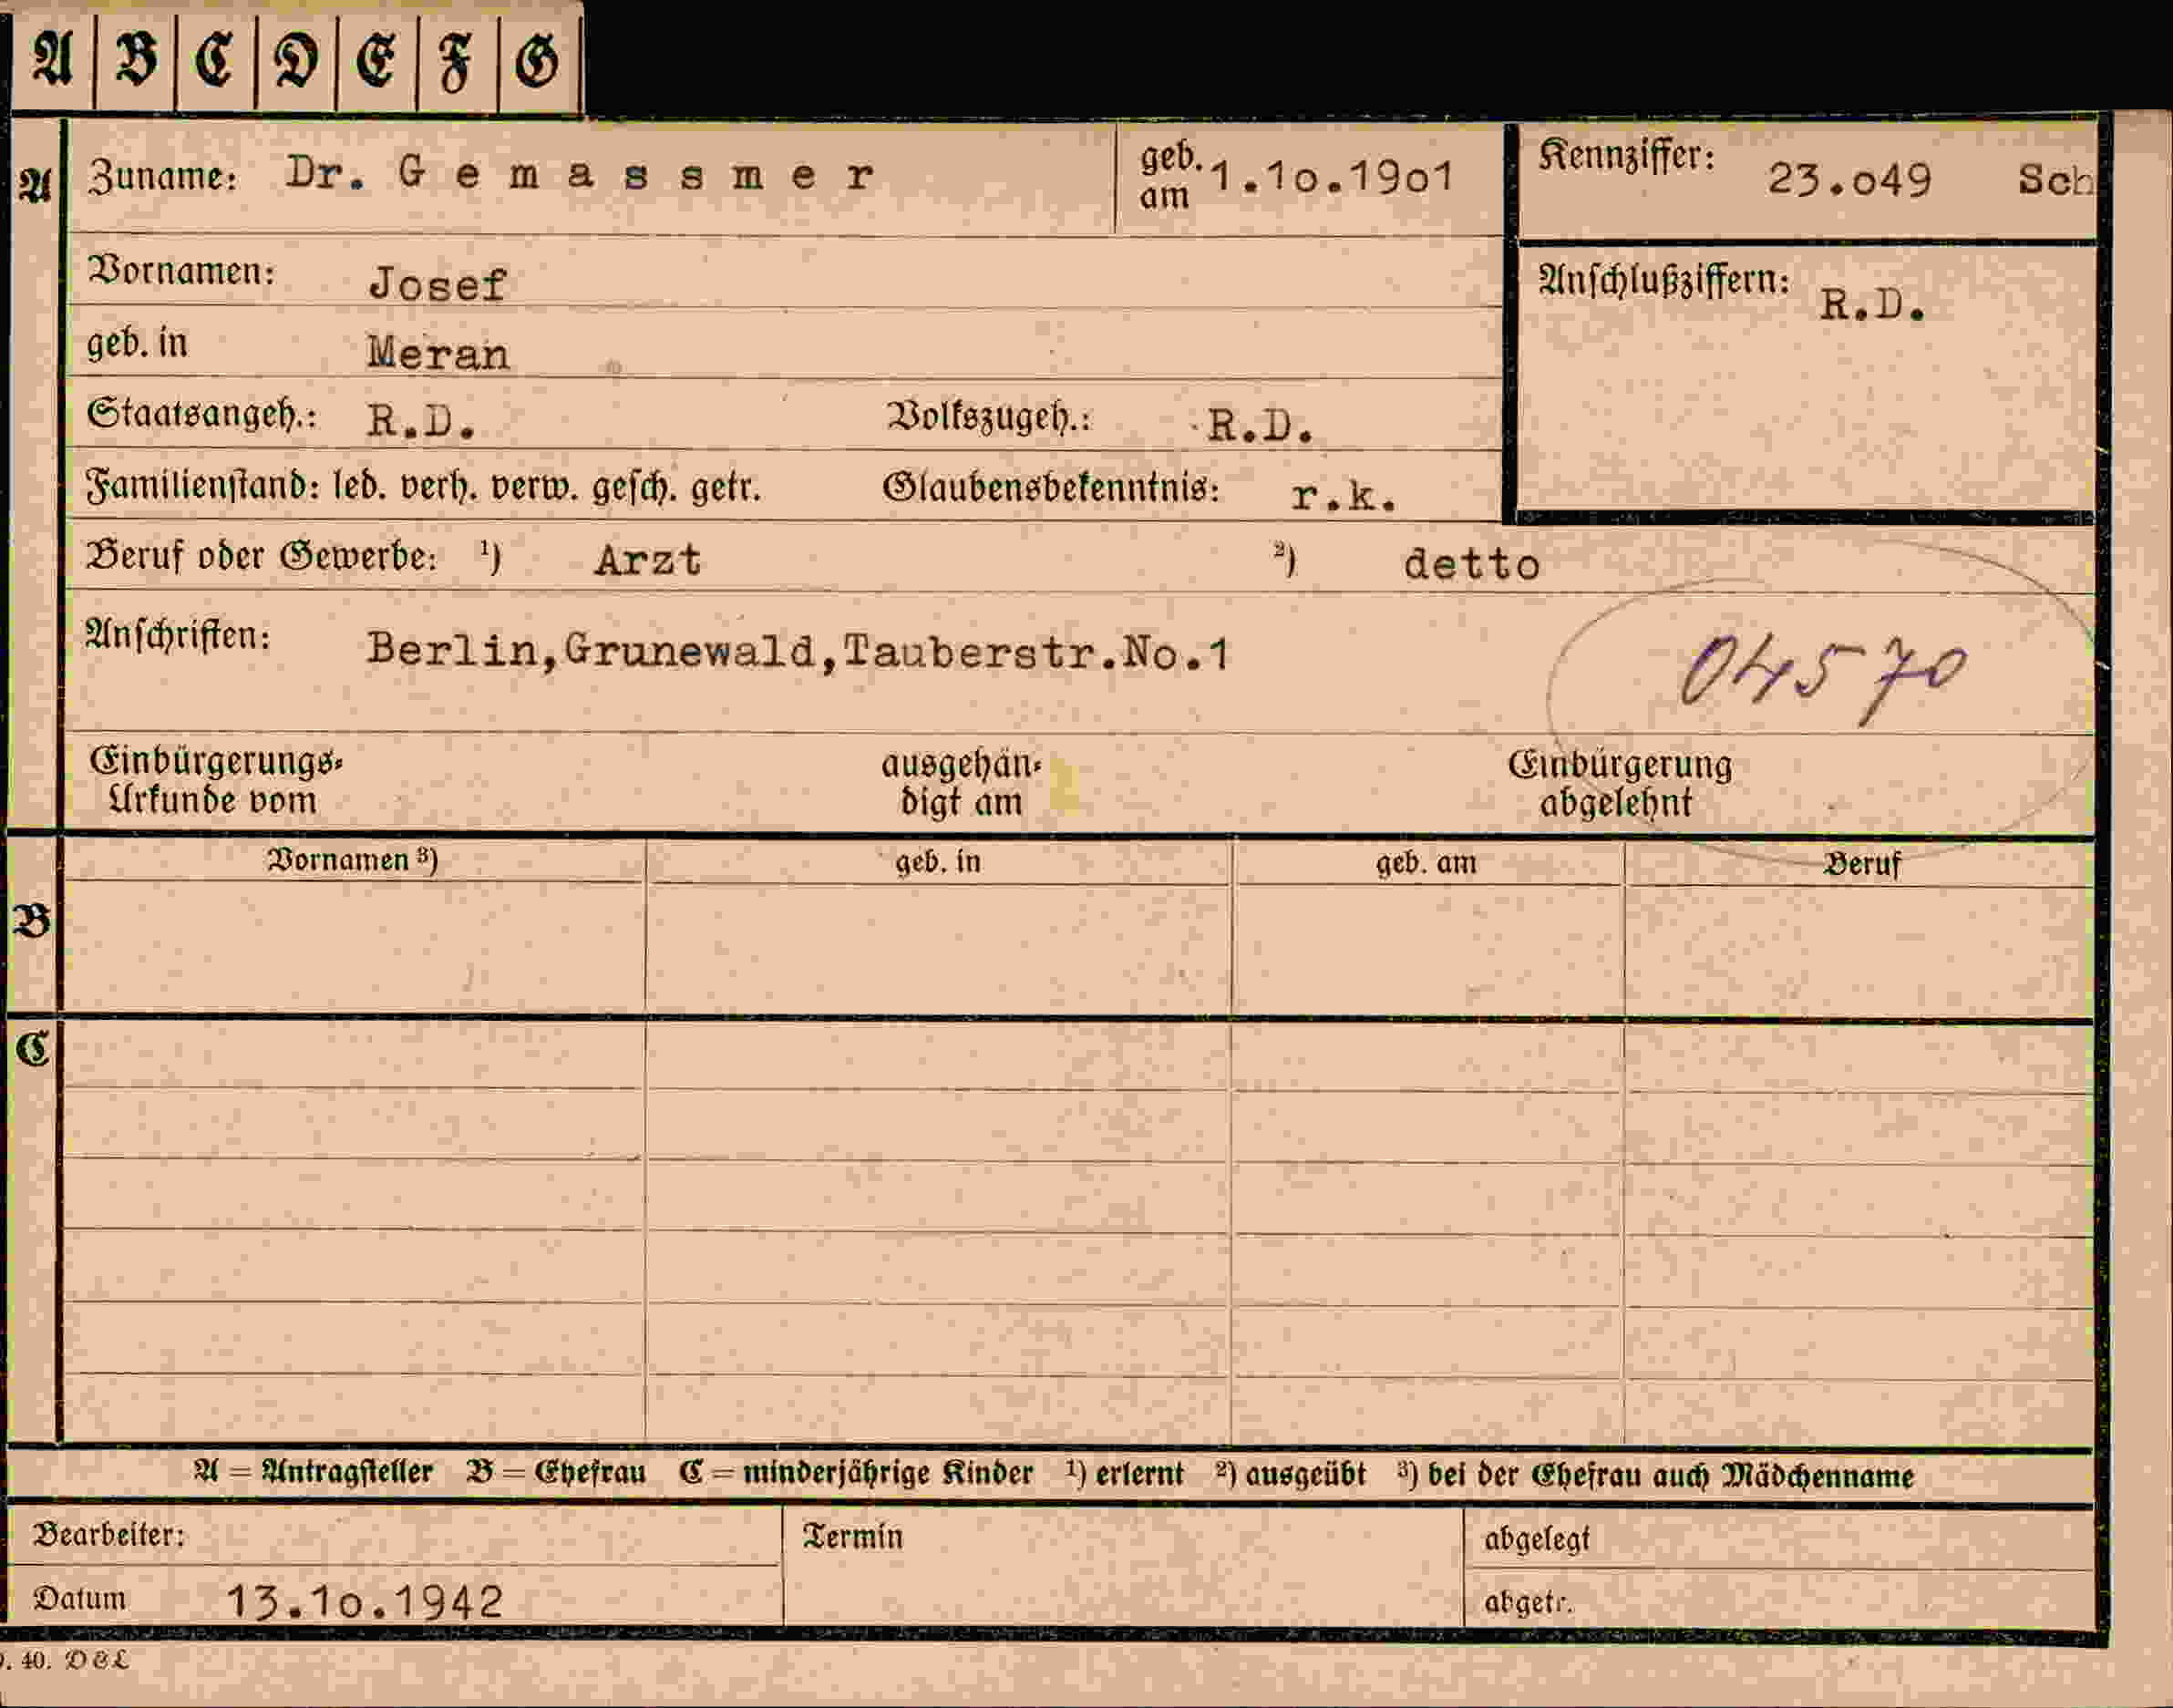 A B C D E F G
A Zuname: Dr. G e m a s s m e r geb. am 1.1o.19o1 Kennziffer: 23.o49 Sch
Vornamen: Josef Anschlußziffern: R.D.
geb. in Meran
Staatsangeh.: R.D. Volkszugeh.: R.D.
Familienstand: led. verh. verw. gesch. getr. Glaubensbekenntnis: r.k.
Beruf oder Gewerbe: ¹) Arzt ²) detto
Anschriften: Berlin,Grunewald,Tauberstr.No.1 04570
Einbürgerungs- ausgehän- Einbürgerung
Urkunde vom digt am abgelehnt
Vornamen ³) geb. in geb. am Beruf
B
C
A = Antragsteller B = Ehefrau C = minderjährige Kinder ¹) erlernt ²) ausgeübt ³) bei der Ehefrau auch Mädchenname
Bearbeiter: Termin abgelegt
Datum 13.1o.1942 abgetr.
. 40.